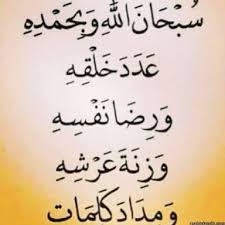 سُبْحَانَ اللهِ وَبِحَمْدِهِ
عَدَدَ خَلْقِهِ
وَرِضَا نَفْسِهِ
وَزِنَةَ عَرْشِهِ
وَمِدَادَ كَلِمَاتِ